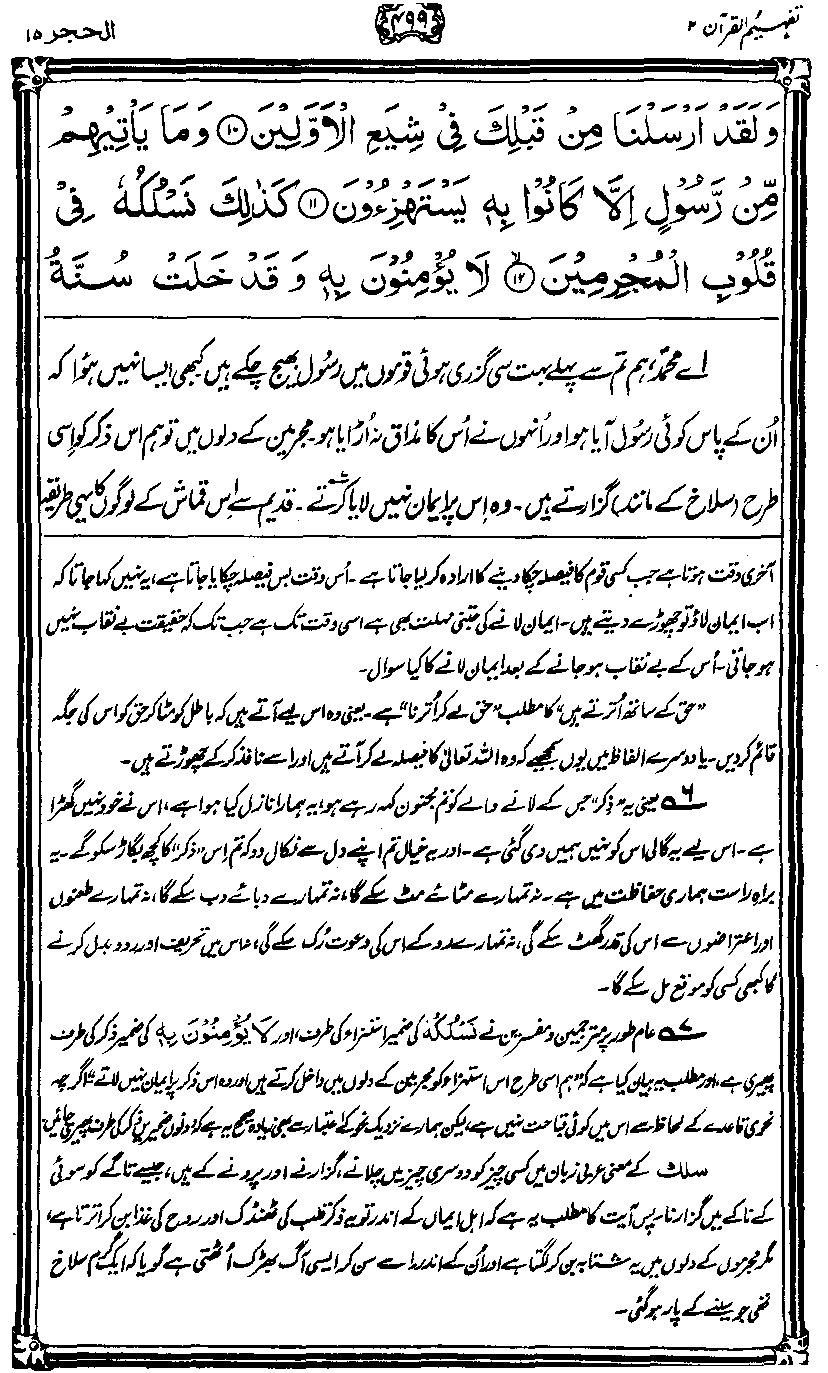 تفہیم القرآن ۲
۴۹۹
الحجر ۱۵
وَلَقَدْ اَرْسَلْنَا مِنْ قَبْلِكَ فِيْ شِيَعِ الْاَوَّلِيْنَ ۝۱۰ وَمَا يَاْتِيْهِمْ
مِّنْ رَّسُوْلٍ اِلَّا كَانُوْا بِهٖ يَسْتَهْزِءُوْنَ ۝۱۱ كَذٰلِكَ نَسْلُكُهٗ فِيْ
قُلُوْبِ الْمُجْرِمِيْنَ ۝۱۲ لَا يُؤْمِنُوْنَ بِهٖ وَقَدْ خَلَتْ سُنَّةُ
اے محمدؐ، ہم تم سے پہلے بہت سی گزری ہوئی قوموں میں رسول بھیج چکے ہیں کبھی ایسا نہیں ہوا کہ
اُن کے پاس کوئی رسول آیا ہو اور اُنہوں نے اُس کا مذاق نہ اُڑایا ہو۔ مجرمین کے دلوں میں تو ہم اس ذکر کو اِسی
طرح (سلاخ کے مانند) گزارتے ہیں۔ وہ اِس پر ایمان نہیں لایا کرتے۷۔ قدیم سے اِس قماش کے لوگوں کا یہی طریقہ
آخری وقت ہوتا ہے جب کسی قوم کا فیصلہ چکا دینے کا ارادہ کر لیا جاتا ہے۔ اُس وقت بس فیصلہ چکایا جاتا ہے، یہ نہیں کہا جاتا کہ
اب ایمان لاؤ تو چھوڑے دیتے ہیں۔ ایمان لانے کی جتنی مہلت بھی ہے اسی وقت تک ہے جب تک کہ حقیقت بے نقاب نہیں
ہو جاتی۔ اُس کے بے نقاب ہو جانے کے بعد ایمان لانے کا کیا سوال۔
”حق کے ساتھ اُترتے ہیں“ کا مطلب ”حق لے کر اُترنا“ ہے۔ یعنی وہ اس لیے آتے ہیں کہ باطل کو مٹا کر حق کو اس کی جگہ
قائم کر دیں۔ یا دوسرے الفاظ میں یوں سمجھیے کہ وہ اللہ تعالیٰ کا فیصلہ لے کر آتے ہیں اور اسے نافذ کر کے چھوڑتے ہیں۔
۶ یعنی یہ ”ذکر“ جس کے لانے والے کو تم مجنون کہہ رہے ہو، یہ ہمارا نازل کیا ہوا ہے، اس نے خود نہیں گھڑا
ہے۔ اس لیے یہ گالی اس کو نہیں ہمیں دی گئی ہے۔ اور یہ خیال تم اپنے دل سے نکال دو کہ تم اِس ”ذکر“ کا کچھ بگاڑ سکو گے۔ یہ
براہِ راست ہماری حفاظت میں ہے۔ نہ تمہارے مٹائے مٹ سکے گا، نہ تمہارے دبائے دب سکے گا، نہ تمہارے طعنوں
اور اعتراضوں سے اس کی قدر گھٹ سکے گی، نہ تمہارے روکے اس کی دعوت رُک سکے گی، نہ اس میں تحریف اور ردوبدل کرنے
کا کبھی کسی کو موقع مل سکے گا۔
۷ عام طور پر مترجمین و مفسرین نے نَسْلُكُهٗ کی ضمیر استہزاء کی طرف، اور لَا يُؤْمِنُوْنَ بِهٖ کی ضمیر ذکر کی طرف
پھیری ہے، اور مطلب یہ بیان کیا ہے کہ ”ہم اسی طرح اس استہزاء کو مجرمین کے دلوں میں داخل کرتے ہیں اور وہ اس ذکر پر ایمان نہیں لاتے“ اگرچہ
نحوی قاعدے کے لحاظ سے اس میں کوئی قباحت نہیں ہے، لیکن ہمارے نزدیک نحو کے اعتبار سے بھی زیادہ صحیح یہ ہے کہ دونوں ضمیریں ذکر کی طرف پھیری جائیں
سلك کے معنی عربی زبان میں کسی چیز کو دوسری چیز میں چلانے، گزارنے اور پرونے کے ہیں، جیسے تاگے کو سوئی
کے ناکے میں گزارنا۔ پس آیت کا مطلب یہ ہے کہ اہل ایمان کے اندر تو یہ ذکر قلب کی ٹھنڈک اور روح کی غذا بن کر اترتا ہے،
مگر مجرموں کے دلوں میں یہ شتابہ بن کر لگتا ہے اور اُن کے اندر اسے سن کر ایسی آگ بھڑک اُٹھتی ہے گویا کہ ایک گرم سلاخ
تھی جو سینے کے پار ہو گئی۔